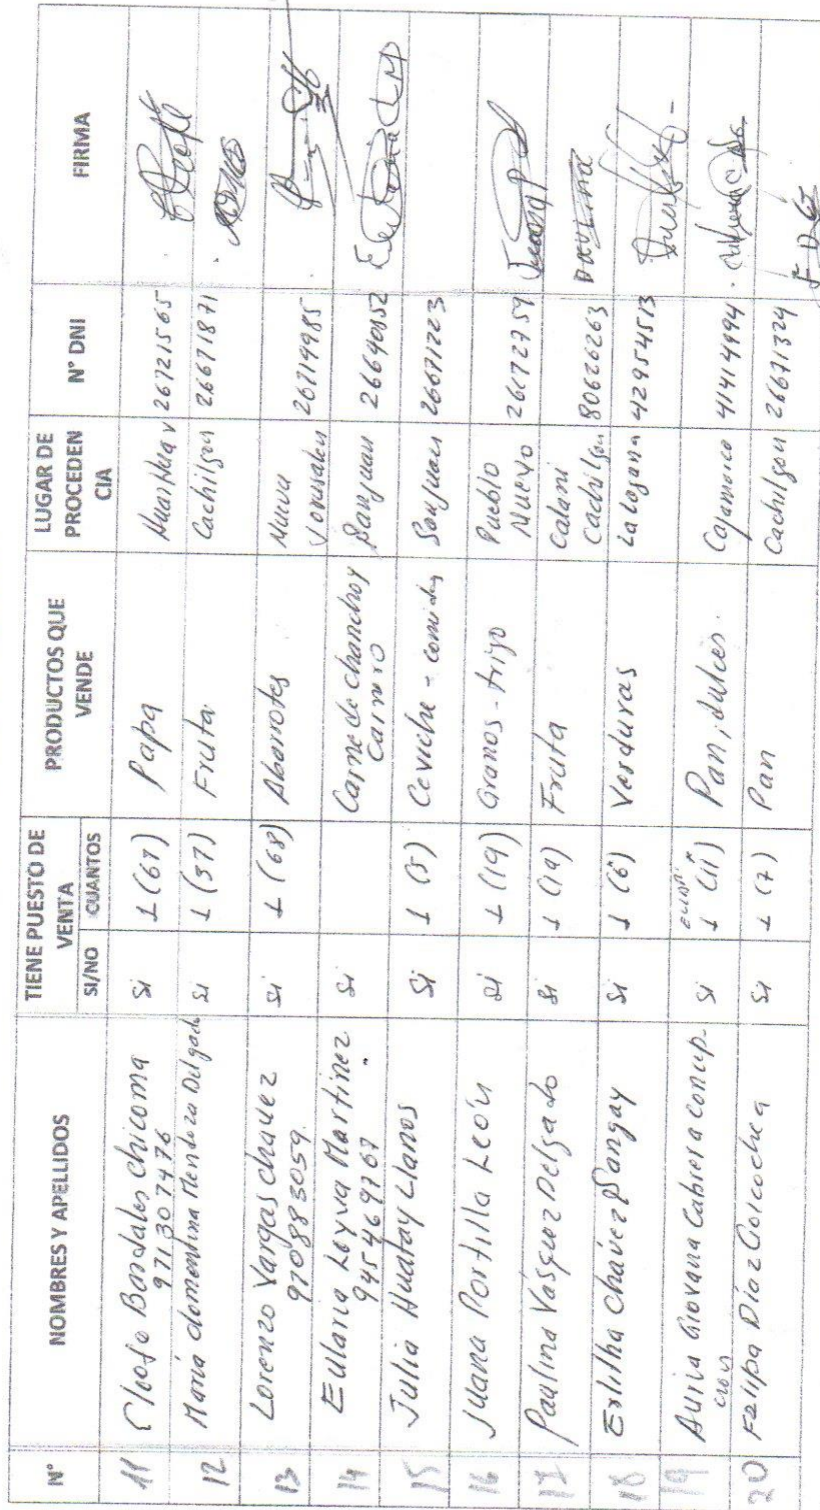 N° NOMBRES Y APELLIDOS TIENE PUESTO DE VENTA SI/NO CUANTOS PRODUCTOS QUE VENDE LUGAR DE PROCEDENCIA N° DNI FIRMA
11 Cleofe Bardales Chicoma Si 1 (67) Papa 26721565
971307476
12 María clomentina Mendoza Delgado Si 1 (37) Fruta Cachilgon 26671871
13 Lorenzo Vargas chavez Si 1 (68) Abarrotes Nueva Jerusalen 26719985
970883059
14 Eularia Leyva Martinez Si Carne de chancho y carnero San juan 26640152
945469767
15 Julia Huatay Llanos Si 1 (5) Ceviche - comida San juan 26671223
16 Juana Portilla León Si 1 (19) Granos - trigo Pueblo Nuevo 26172759
17 Paulina Vásquez Delgado Si 1 (19) Fruta Calani Cachilgon 80626263
18 Erlilha Chávez Sangay Si 1 (6) Verduras La Togana 42954513
19 Giovana Cabrera Si 1 (11) Pan, dulces. Cajamarca 41414994
20 Felipa Díaz Goicochea Si 1 (7) Pan Cachilgon 26671324 F D G